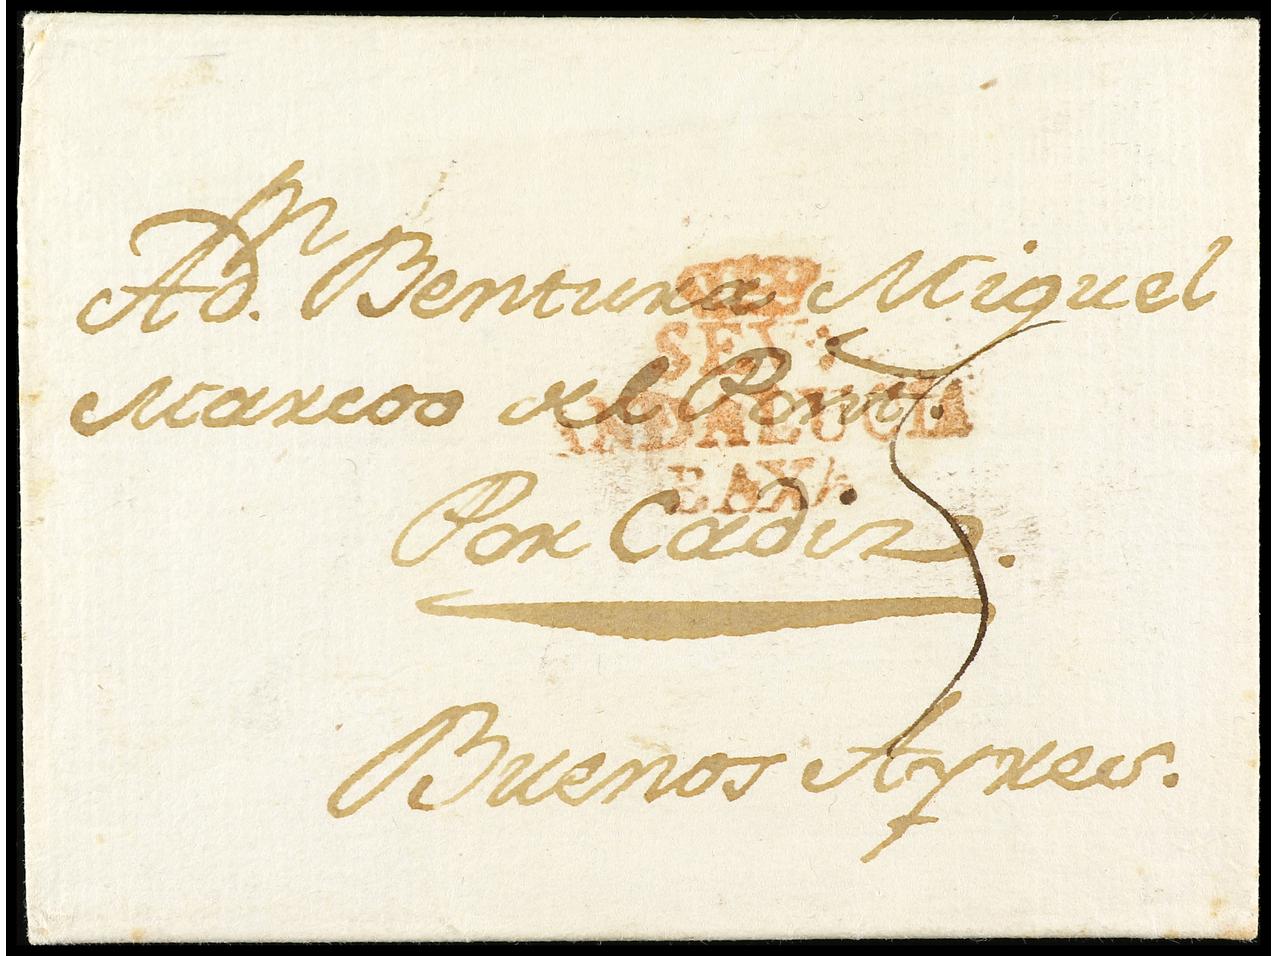 A Dn. Bentura Miguel
Marcos del Pont.
Por Cadiz.
Buenos Ayres.
SEV:
ANDALUCIA
BAXA.
5